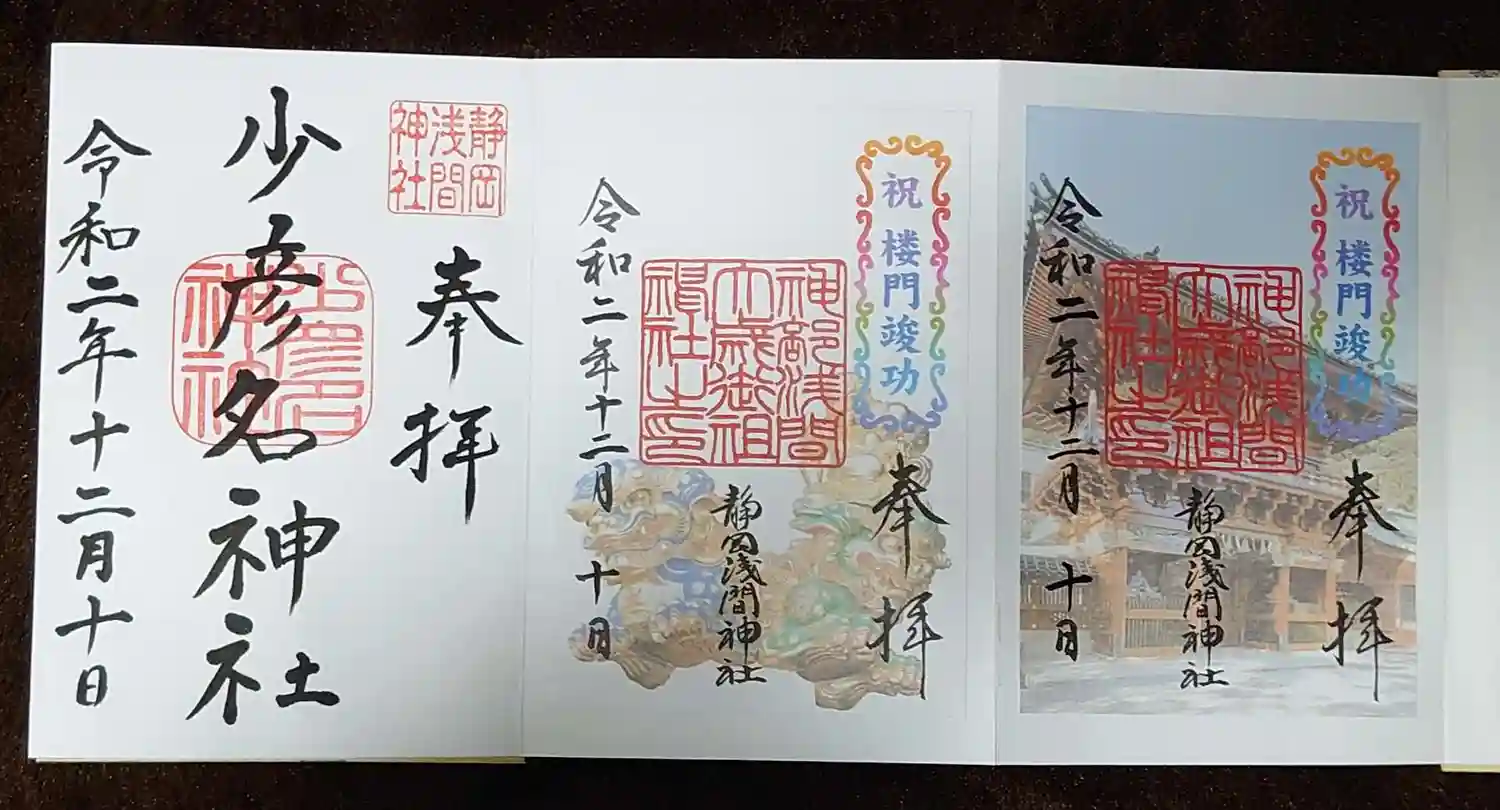 祝 楼門竣功
奉拝
神部浅間
大歳御祖
神社之印
静岡浅間神社
令和二年十二月十日
祝 楼門竣功
奉拝
神部浅間
大歳御祖
神社之印
静岡浅間神社
令和二年十二月十日
静岡
浅間
神社
奉拝
少彦名神社
少彦名
神社
令和二年十二月十日